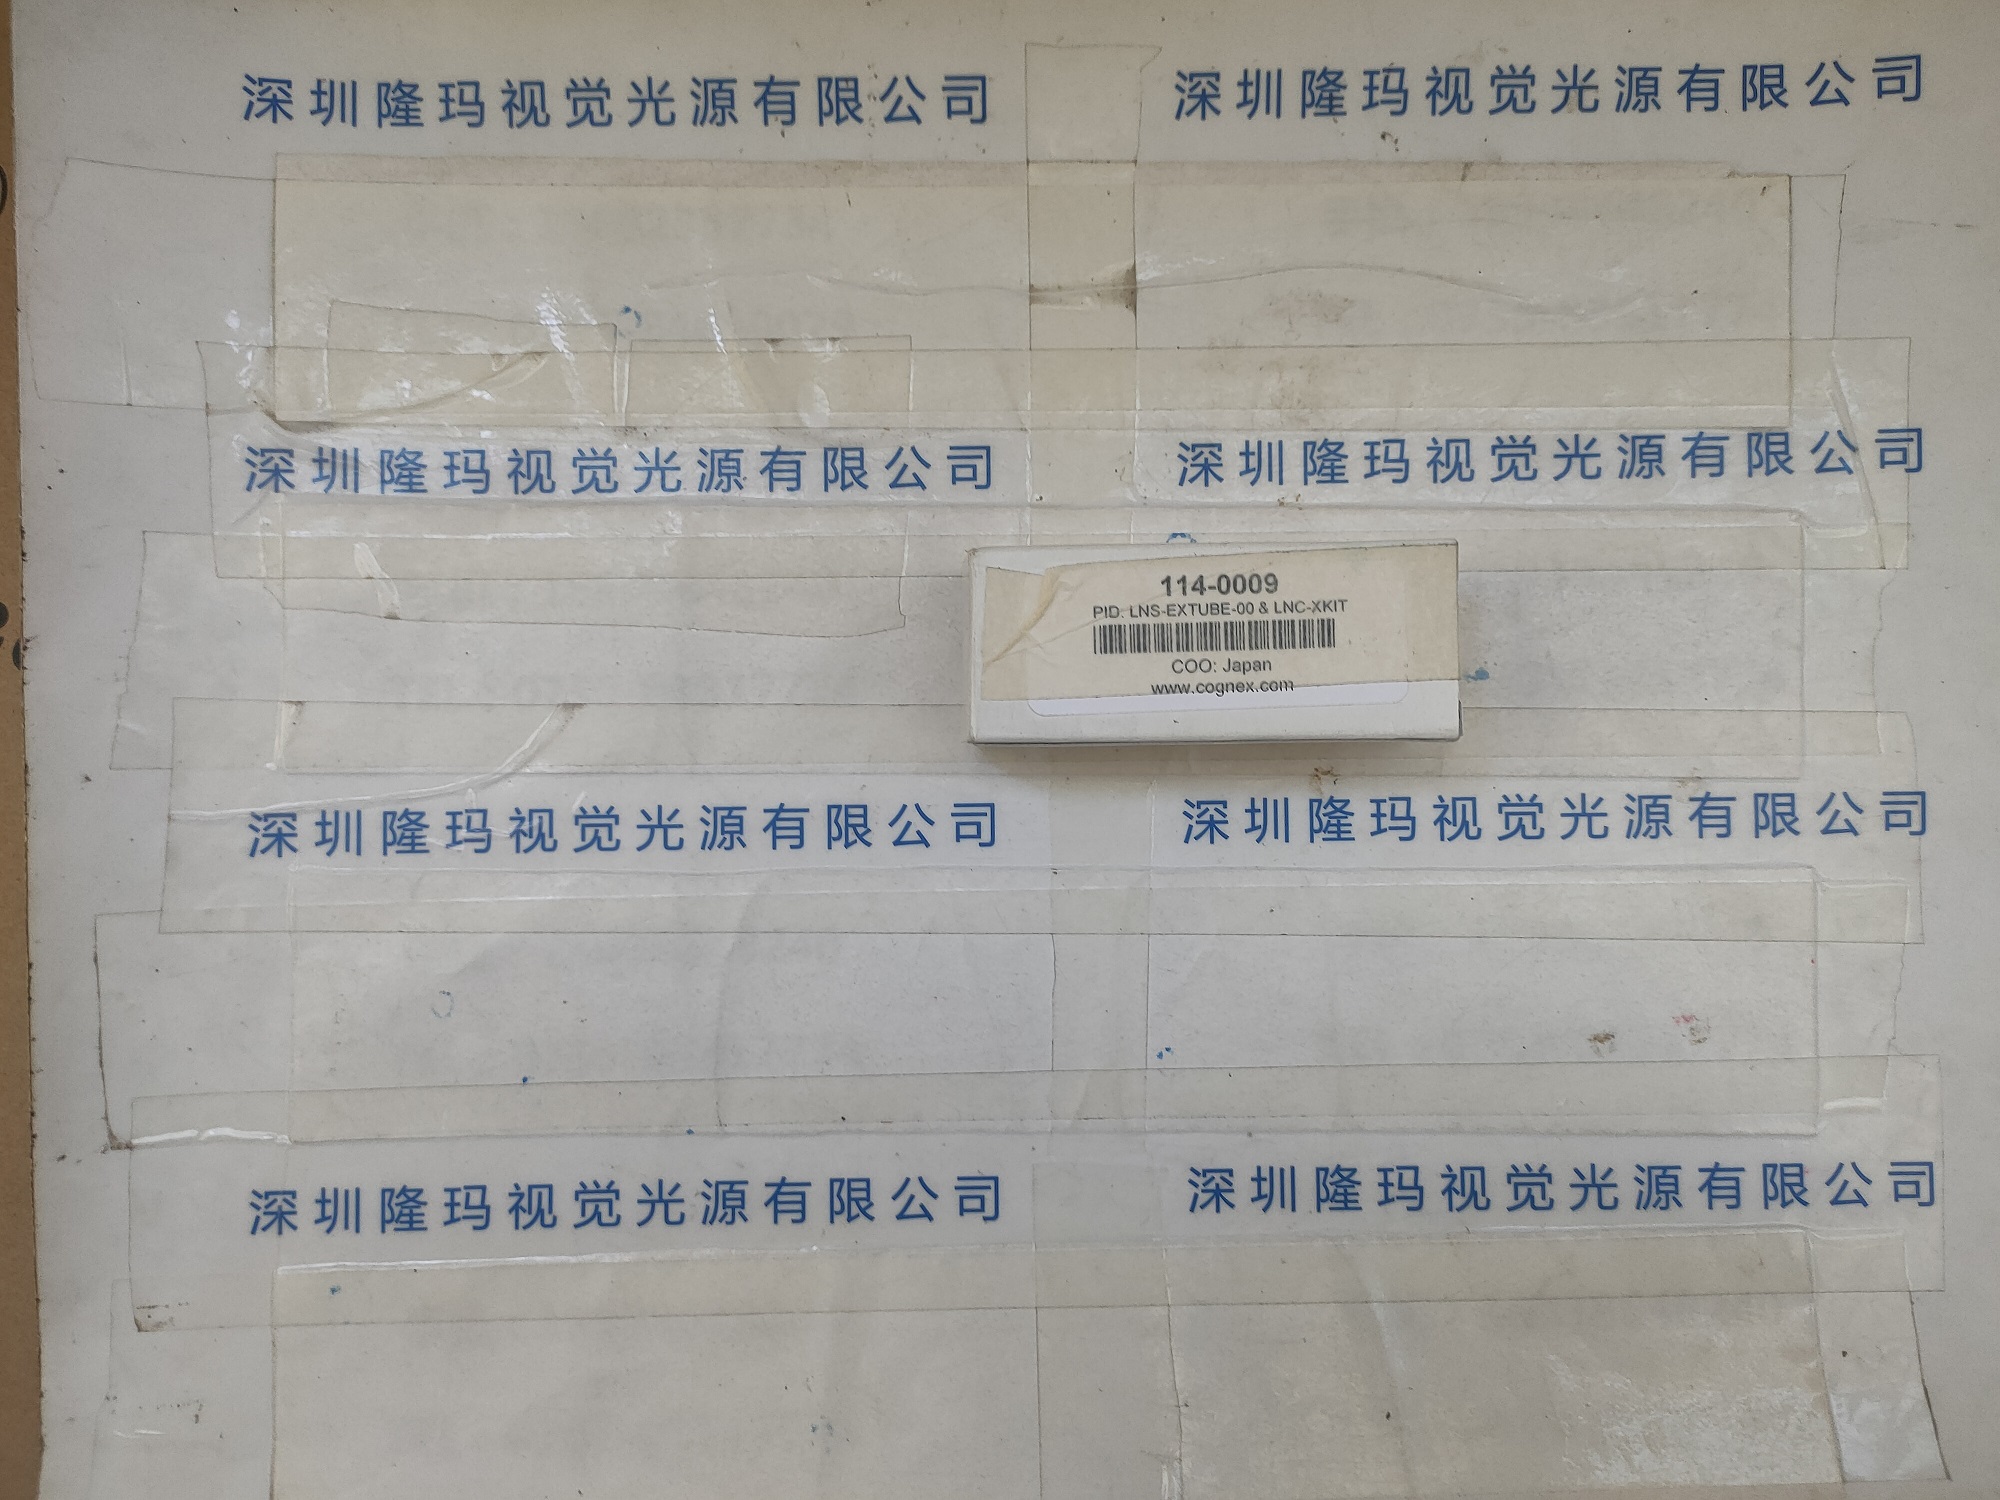 深圳隆玛视觉光源有限公司 深圳隆玛视觉光源有限公司
深圳隆玛视觉光源有限公司 深圳隆玛视觉光源有限公司
114-0009
PID: LNS-EXTUBE-00 & LNC-XKIT
COO: Japan
www.cognex.com
深圳隆玛视觉光源有限公司 深圳隆玛视觉光源有限公司
深圳隆玛视觉光源有限公司 深圳隆玛视觉光源有限公司